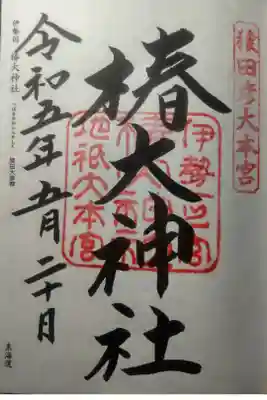 猿田彦大本宮
椿大神社
地祇大本宮
令和五年五月二十日
伊勢国 椿大神社
東海道